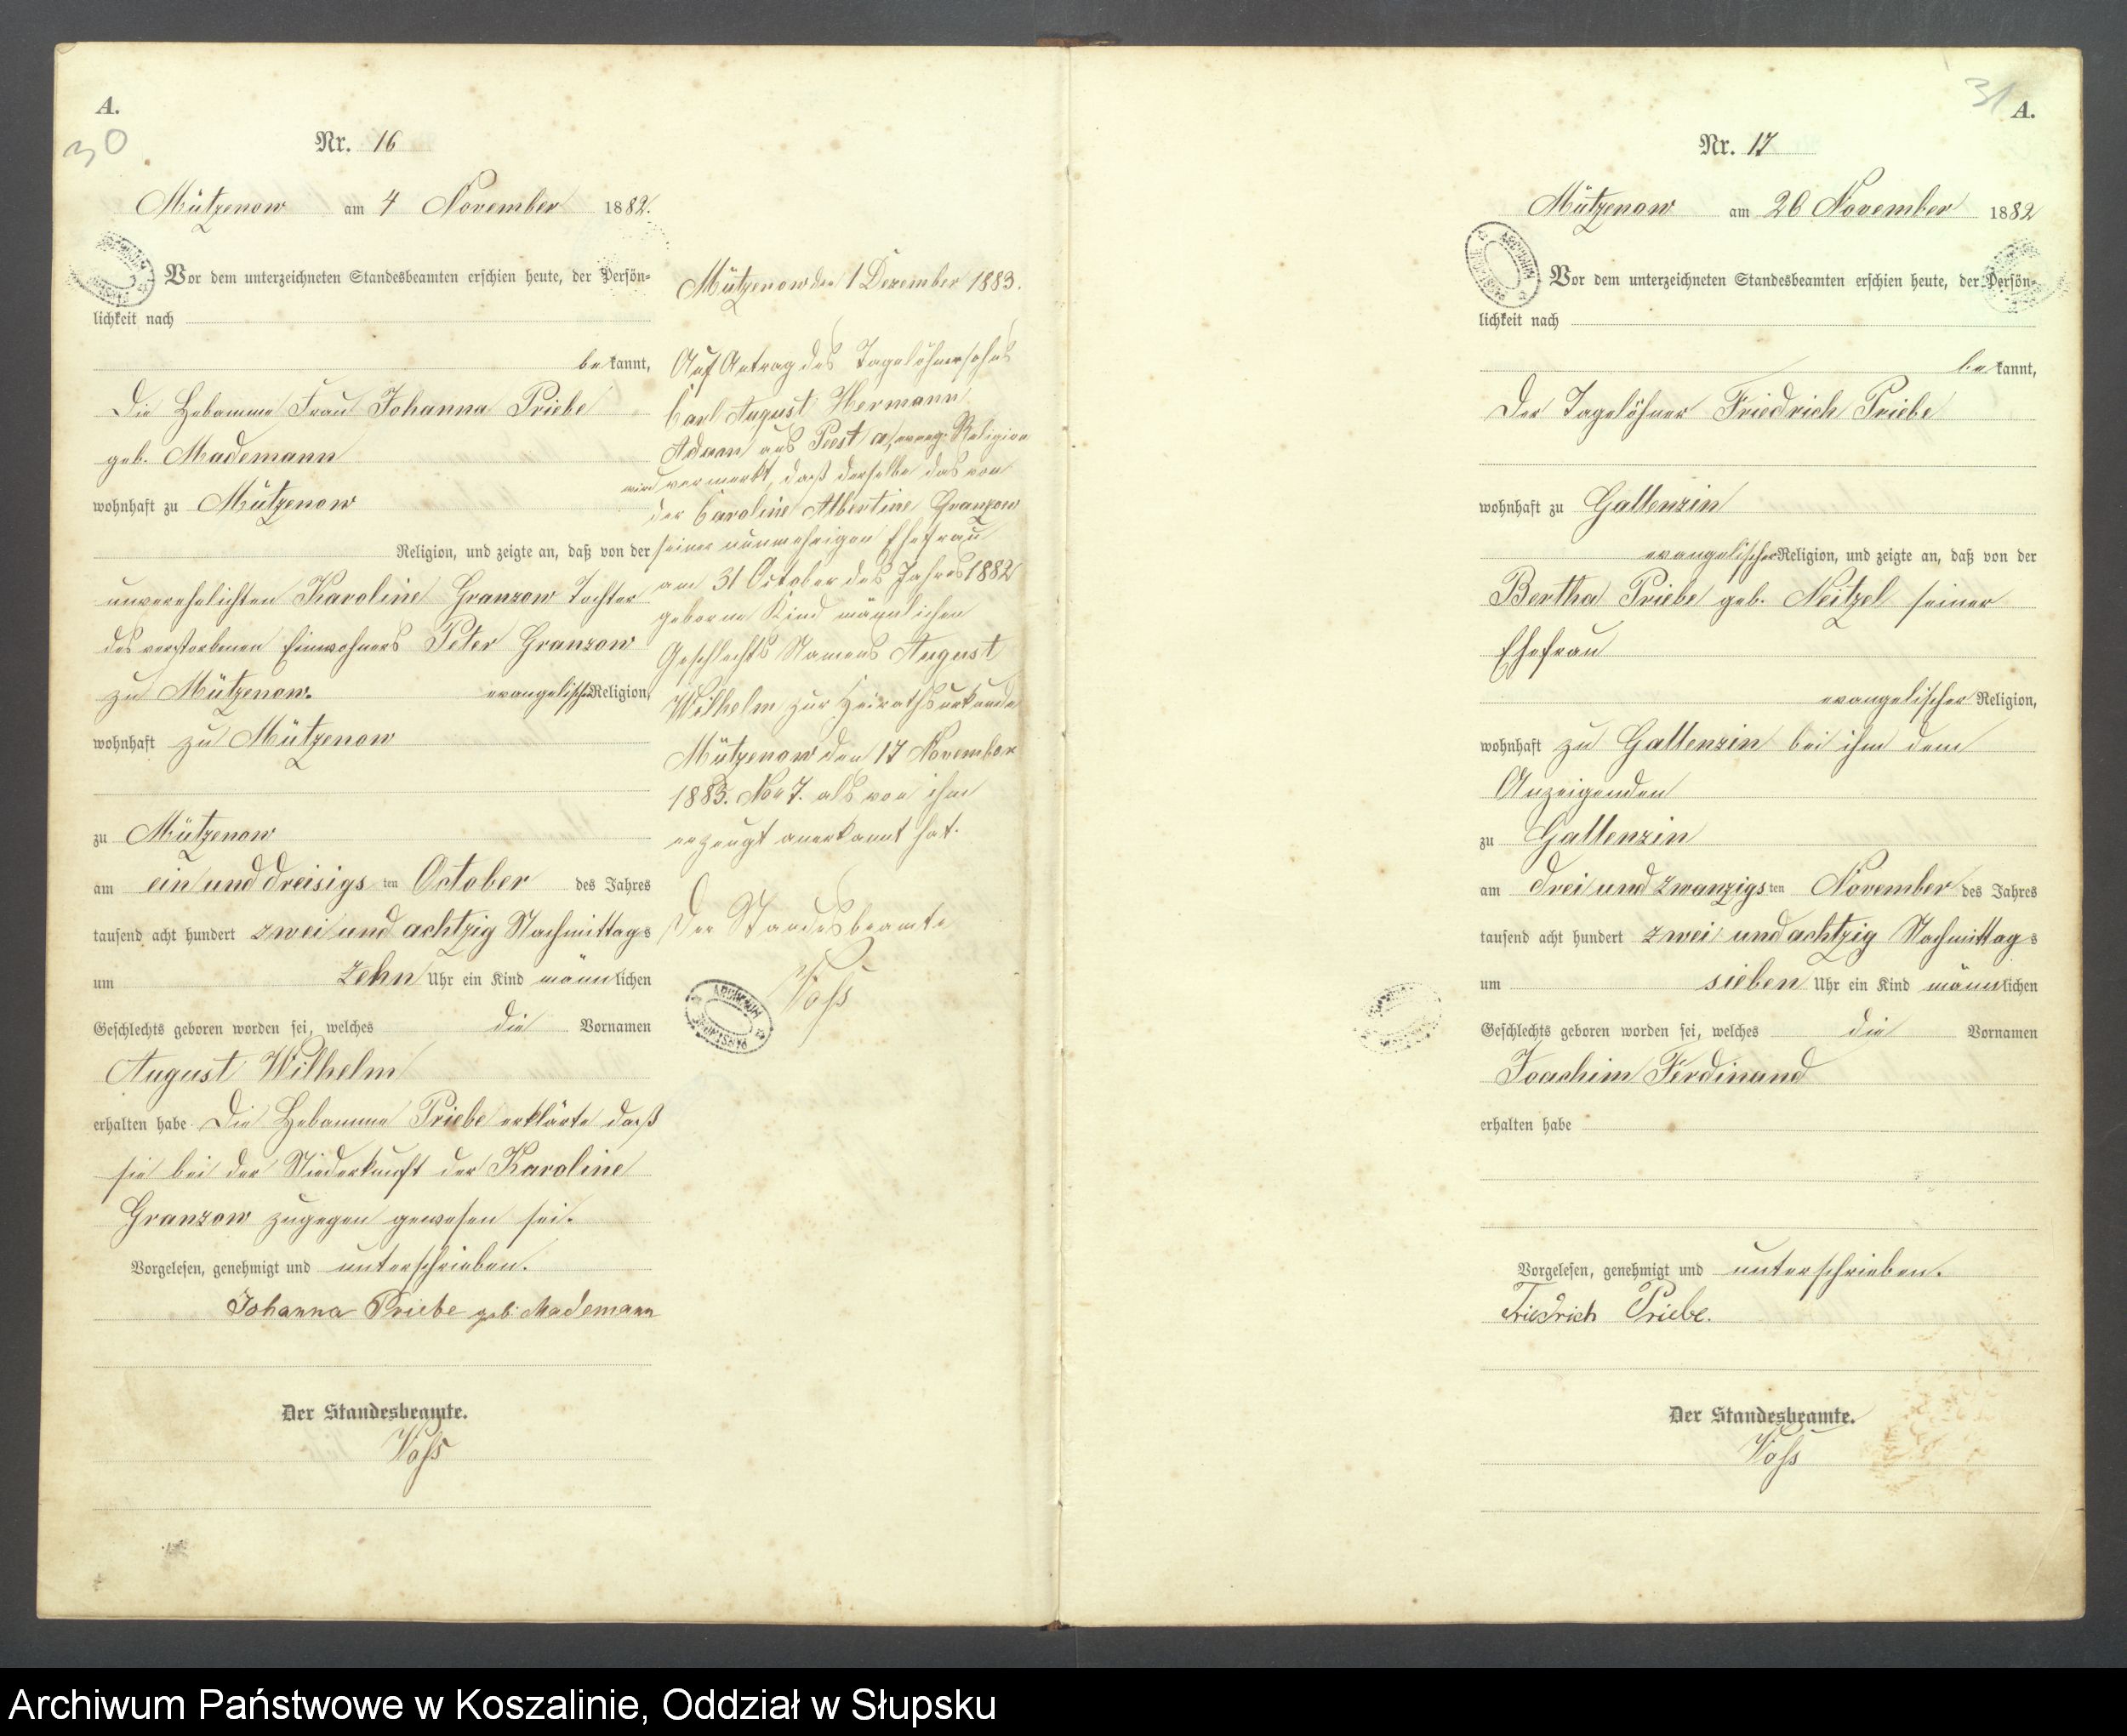 A.
30
Nr. 16
Mützenow am 4 November 1882.
Vor dem unterzeichneten Standesbeamten erschien heute, der Persön=
lichkeit nach
bekannt,
Die Hebamme Frau Johanna Priebe
geb. Mademann
wohnhaft zu Mützenow
Religion, und zeigte an, daß von der
unverehelichten Karoline Granzow Tochter
des verstorbenen Einwohners Peter Granzow
zu Mützenow. evangelischer Religion,
wohnhaft zu Mützenow
zu Mützenow
am ein und dreisigsten October des Jahres
tausend acht hundert zwei und achtzig Nachmittags
um zehn Uhr ein Kind männlichen
Geschlechts geboren worden sei, welches die Vornamen
August Wilhelm
erhalten habe Die Hebamme Priebe erklärte daß
sie bei der Niederkunft der Karoline
Granzow zugegen gewesen sei.
Vorgelesen, genehmigt und unterschrieben.
Johanna Priebe geb. Mademann
Der Standesbeamte.
Voß
Mützenow den 1 Dezember 1883.
Auf Antrag des Tagelöhnersohnes
Carl August Hermann
aus Peest evang. Religion
wird vermerkt, daß derselbe das von
der Caroline Albertine Granzow
seiner nunmehrigen Ehefrau
am 31 October des Jahres 1882
geborne Kind männlichen
Geschlechts Namens August
Wilhelm zur Heirathsurkunde
Mützenow den 17 November
1883. No 7. als von ihm
erzeugt anerkannt hat.
Der Standesbeamte
Voß
31
A.
Nr. 17
Mützenow am 26 November 1882
Vor dem unterzeichneten Standesbeamten erschien heute, der Persön=
lichkeit nach
bekannt,
Der Tagelöhner Friedrich Priebe
wohnhaft zu Gallenzin
evangelischer Religion, und zeigte an, daß von der
Bertha Priebe geb. Neitzel seiner
Ehefrau
evangelischer Religion,
wohnhaft zu Gallenzin bei ihm dem
Anzeigenden
zu Gallenzin
am drei und zwanzigsten November des Jahres
tausend acht hundert zwei und achtzig Nachmittags
um sieben Uhr ein Kind männlichen
Geschlechts geboren worden sei, welches die Vornamen
Joachim Ferdinand
erhalten habe
Vorgelesen, genehmigt und unterschrieben.
Friedrich Priebe.
Der Standesbeamte.
Voß
Archiwum Państwowe w Koszalinie, Oddział w Słupsku